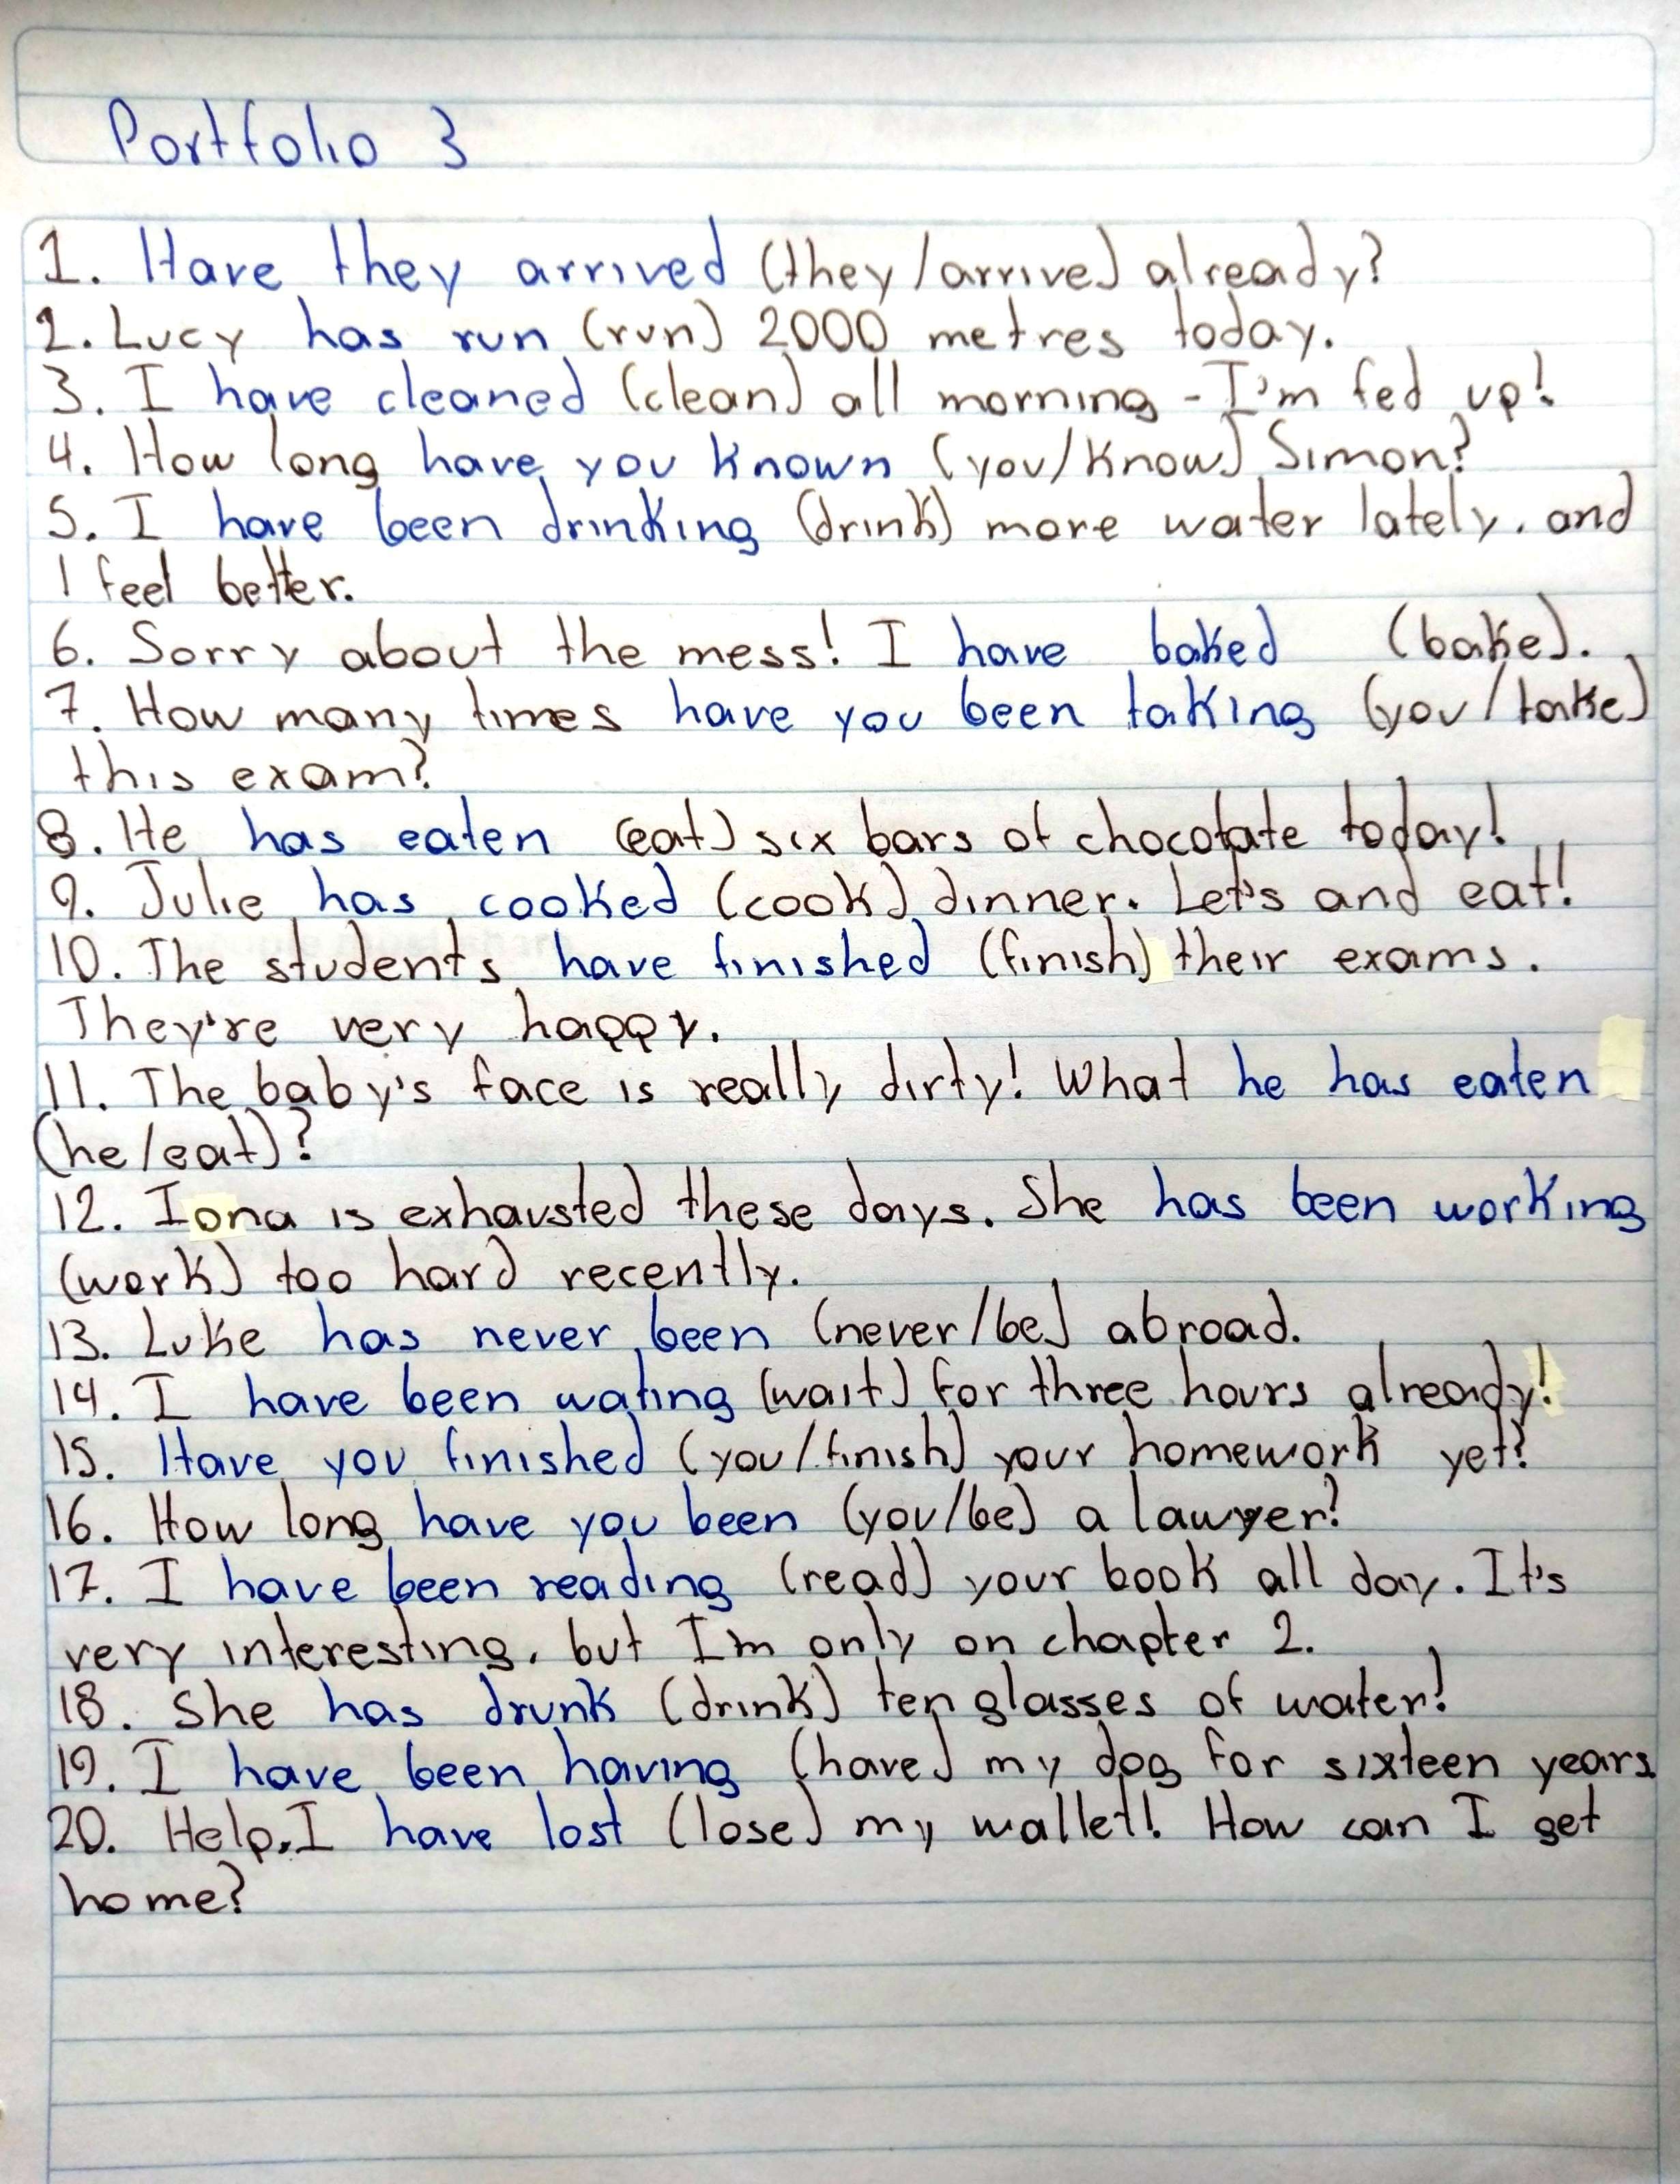 Portfolio 3
1. Have they arrived (they/arrive) already?
2. Lucy has run (run) 2000 metres today.
3. I have cleaned (clean) all morning - I'm fed up!
4. How long have you known (you/know) Simon?
5. I have been drinking (drink) more water lately, and
I feel better.
6. Sorry about the mess! I have baked (bake).
7. How many times have you been taking (you/take)
this exam?
8. He has eaten (eat) six bars of chocolate today!
9. Julie has cooked (cook) dinner. Let's and eat!
10. The students have finished (finish) their exams.
They're very happy.
11. The baby's face is really dirty! What he has eaten
(he/eat)?
12. Iona is exhausted these days. She has been working
(work) too hard recently.
13. Luke has never been (never/be) abroad.
14. I have been wating (wait) for three hours already!
15. Have you finished (you/finish) your homework yet?
16. How long have you been (you/be) a lawyer?
17. I have been reading (read) your book all day. It's
very interesting, but I'm only on chapter 2.
18. She has drunk (drink) ten glasses of water!
19. I have been having (have) my dog for sixteen years.
20. Help, I have lost (lose) my wallet! How can I get
home?